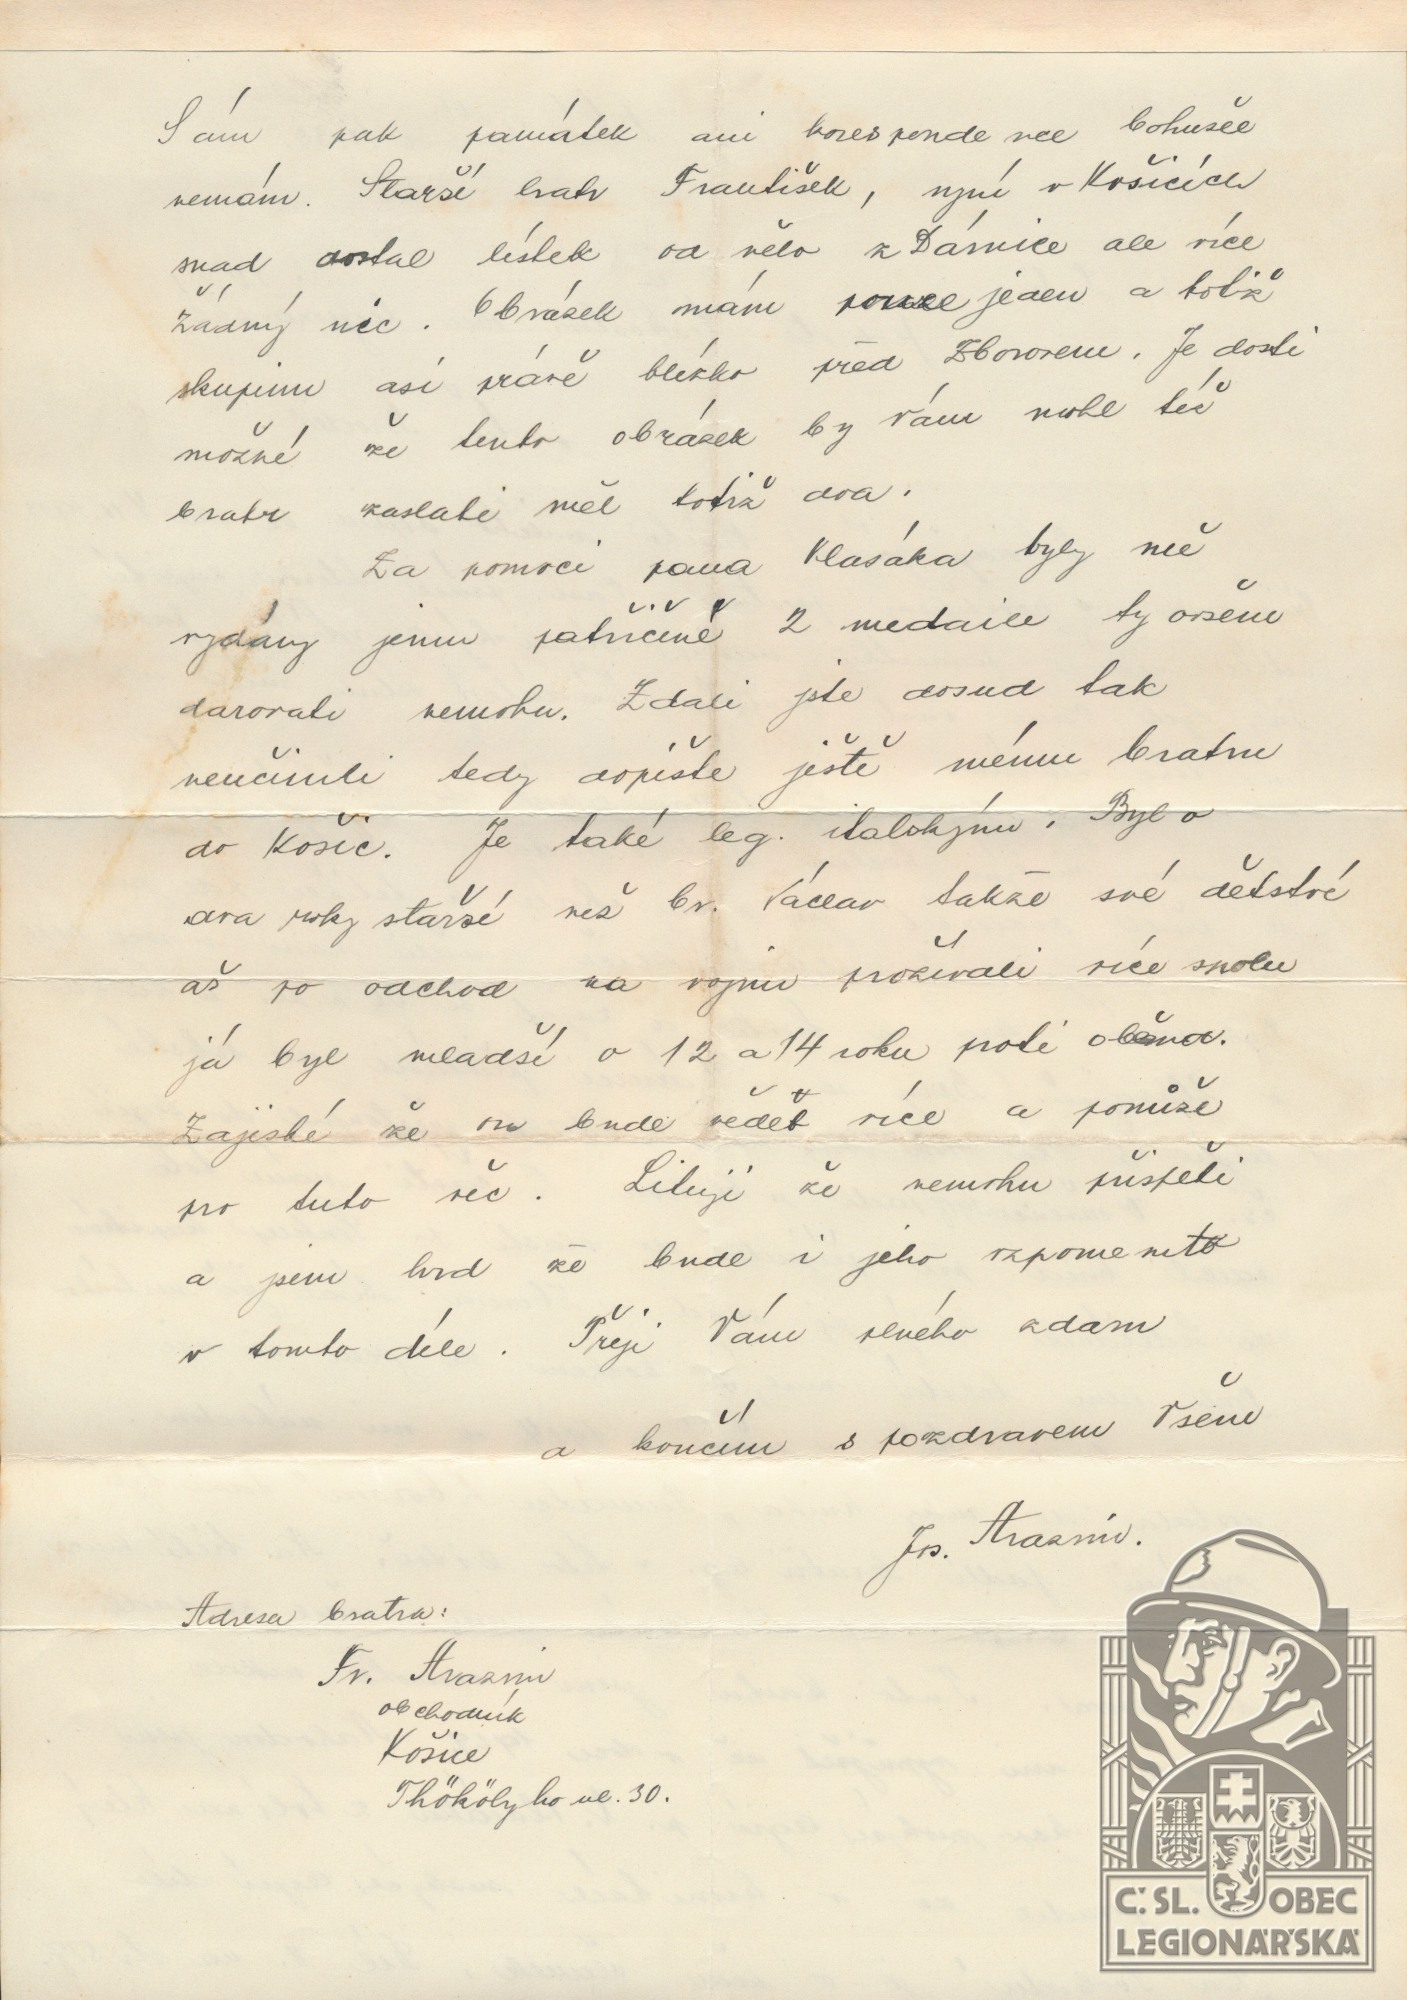 Sám pak památek ani korespondence bohužel
nemám. Starší bratr František, nyní v Košicích
snad dostal lístek od něho z Dárnice ale více
žádný nic. Obrázek mám pouze jeden a totiž
skupinu asi právě blízko před Zborovem. Je dosti
možné že tento obrázek by Vám mohl též
bratr zaslati měl totiž dva.
Za pomoci pana Vlasáka byly mě
vydány jemu patřičné 2 medaile ty ovšem
darovati nemohu. Zdali jste dosud tak
neučinili tedy dopište ještě mému bratru
do Košic. Je také leg. italským. Byl o
dva roky starší než br. Václav takže své dětství
až po odchod na vojnu prožívali více spolu
já byl mladší o 12 a 14 roku proti oběma.
Zajisté že on bude vědět více a pomůže
pro tuto věc. Lituji že nemohu přispěti
a jsem hrd že bude i jeho vzpomenuto
v tomto díle. Přeji Vám plného zdaru
a končím s pozdravem Všem
Jos. Arazim.
Adresa bratra:
Fr. Arazim
obchodník
Košice
Thököly ho ul. 30.
Č. SL. OBEC
LEGIONÁŘSKÁ